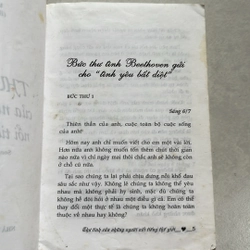 Bức thư tình Beethoven gửi
cho "tình yêu bất diệt"
BỨC THƯ 1
Sáng 6/7
Thiên thần của anh, cuộc toàn bộ cuộc sống
của anh!
Hôm nay anh chỉ muốn viết cho em một vài lời.
Hơn nữa anh không muốn tốn thêm chút thời gian
nào nữa vì chỉ ngày mai thôi chắc anh sẽ không còn
ở chỗ trọ nữa.
Tại sao chúng ta lại phải chịu đựng nỗi khổ đau
sâu sắc như vậy. Không lẽ chúng ta không thể yêu
nhau mà không phải hy sinh, mặc dù chúng ta
không hề đòi hỏi ở nhau một điều gì cả. Em có thể
thay đổi một thực tế là chúng ta không hoàn toàn
thuộc về nhau hay không?
Thư tình của những người nổi tiếng thế giới